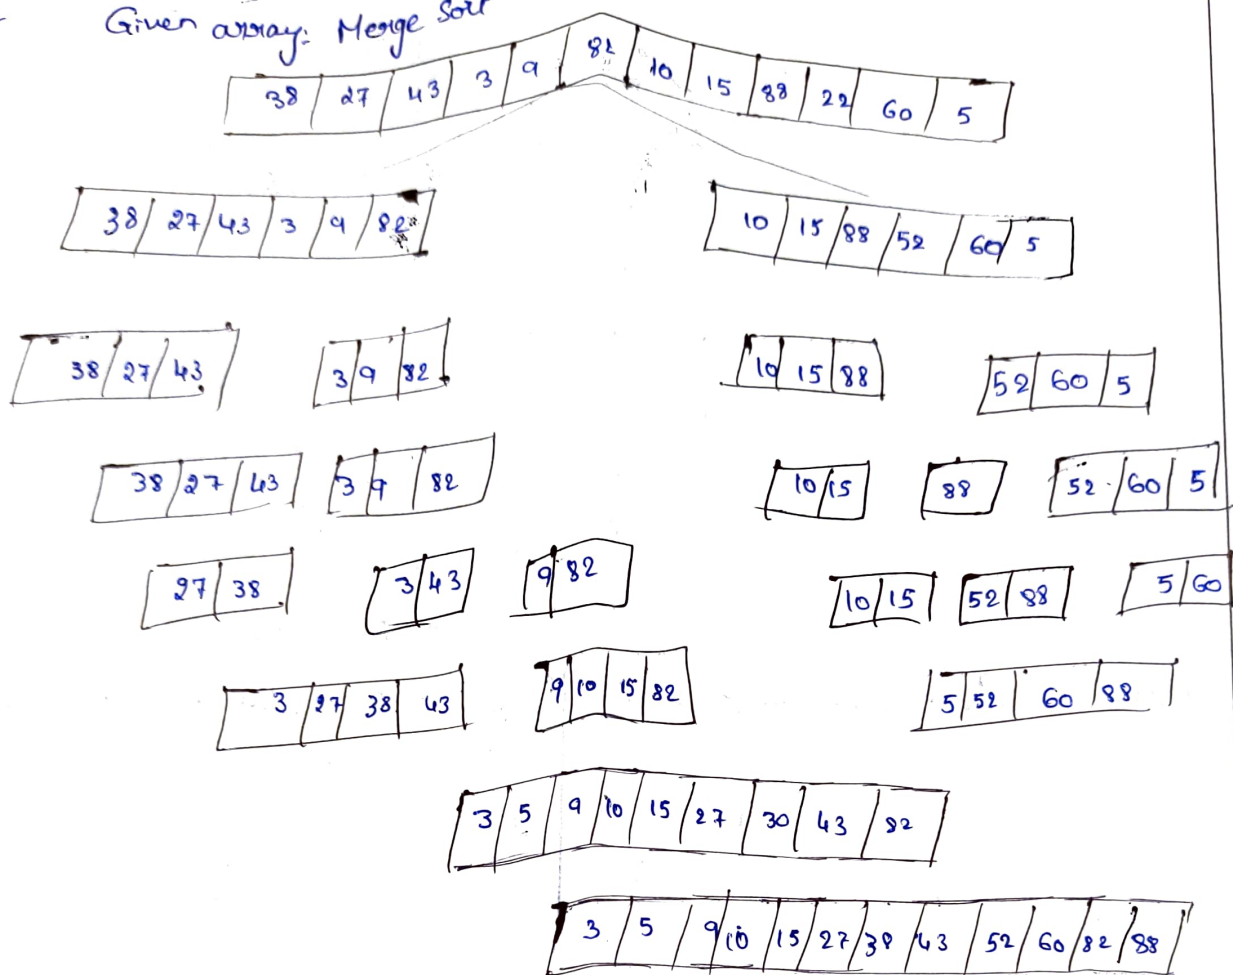 Given array: Merge Sort
38 27 43 3 9 82 10 15 88 22 60 5
38 27 43 3 9 82
10 15 88 52 60 5
38 27 43
3 9 82
10 15 88
52 60 5
38 27 43
3 9 82
10 15
88
52 60 5
27 38
3 43
9 82
10 15
52 88
5 60
3 27 38 43
9 10 15 82
5 52 60 88
3 5 9 10 15 27 30 43 82
3 5 9 10 15 27 38 43 52 60 82 88